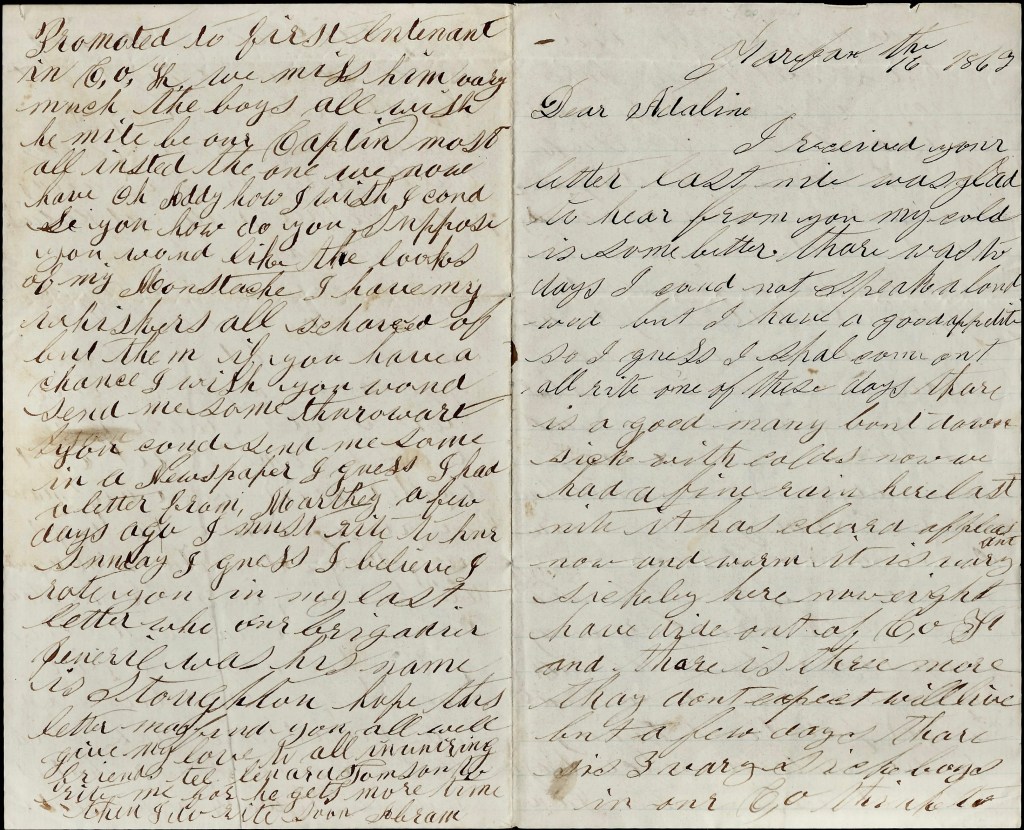 Fairfax the 16 1863
Dear Adaline
I received your
letter last nite was glad
to hear from you my cold
is some better thare was to
days I coud not speake a loud
word but I have a good appetite
so I guess I shal come out
all rite one of these days thare
is a good many bout down
sick with colds now we
had a fine rain here last
nite it has cleard up pleas
ant
now and warm it is vary
sickley here now eight
have dide out of Co H
and thare is three more
thay dont expect will live
but a few days thare
is 3 vary sick boys
in our Co thick to
Promoted to first leutenant
in Co, K, we miss him vary
much the boys all wish
he mite be our Captin most
all insted the one we now
have Oh Addy how I wish I coud
Se you how do you Suppose
you woud like the looks
of my Moustache I have my
whiskers all schaved of
but them if you have a
chance I wish you woud
send me some
you coud send me some
in a Newspaper I guess I had
a letter from, Marthey a few
days ago I must rite to hur
Sunday I guess I believe I
rote you in my last
letter who our brigadier
Generil was his name
is Stoughton hope this
letter may find you all well
give my love to all inquiring
friends tel lenard Tomson to
rite me for he gets more time
then I do rite Soon Abram